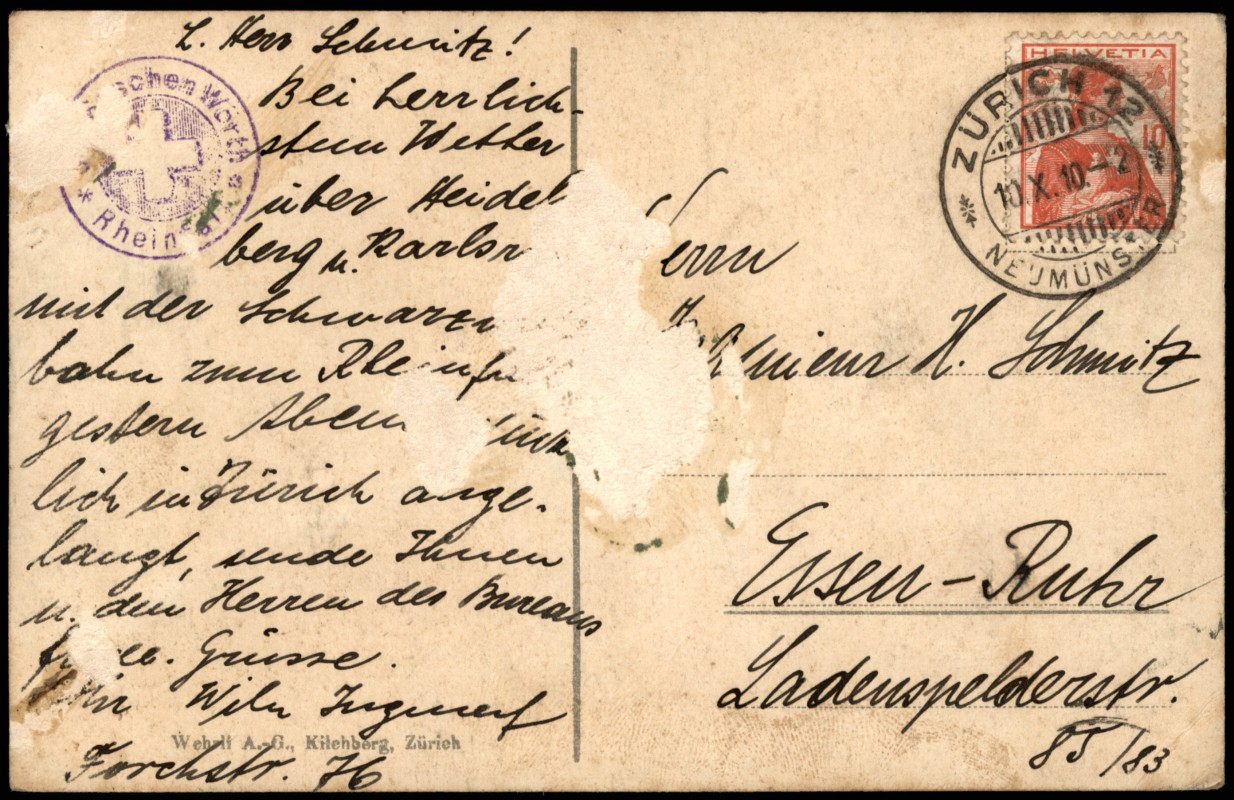 L. Herr Schmitz!
Bei herrlich-
stem Wetter
über Heidel
berg u. Karlsr
mit der Schwarzw
bahn zum Rheinfa
gestern Aben
lich in Zürich ange-
langt, sende Ihnen
u. den Herren des Bureaus
Grüsse.
Wilh
Forchstr. 76
Wehrli A.-G., Kilchberg, Zürich
schen Wörth
Rhein
HELVETIA
10
ZÜRICH 12
10.X.10.-2
NEUMÜNSTER
errn
H. Schmitz
Essen-Ruhr
Ladenspelderstr.
85/83